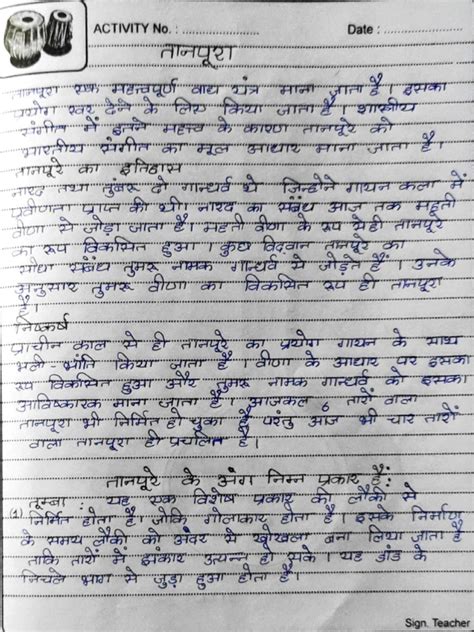 ACTIVITY No. : Date :
तानपूरा
तानपूरा एक महत्वपूर्ण वाद्य यंत्र माना जाता है। इसका
प्रयोग स्वर देने के लिए किया जाता है। शास्त्रीय
संगीत में इतने महत्व के कारण तानपूरे को
भारतीय संगीत का मूल आधार माना जाता है।
तानपूरे का इतिहास
नारद तथा तुंबरू दो गान्धर्व थे जिन्होंने गायन कला में
प्रवीणता प्राप्त की थी। नारद का संबंध आज तक महती
वीणा से जोड़ा जाता है। महती वीणा के रूप से ही तानपूरा
का रूप विकसित हुआ। कुछ विद्वान तानपूरा का
सीधा संबंध तुमरू नामक गान्धर्व से जोड़ते हैं। उनके
अनुसार तुमरू वीणा का विकसित रूप ही तानपूरा
है।
निष्कर्ष
प्राचीन काल से ही तानपूरे का प्रयोग गायन के साथ
भली-भांति किया जाता है। वीणा के आधार पर इसका
रूप विकसित हुआ और तुमरू नामक गान्धर्व को इसका
आविष्कारक माना जाता है। आजकल 6 तारों वाला
तानपूरा भी निर्मित हो चुका है परंतु आज भी चार तारों
वाला तानपूरा ही प्रचलित है।
तानपूरे के अंग निम्न प्रकार हैं:
(1) तूम्बा : यह एक विशेष प्रकार की लौकी से
निर्मित होता है जोकि गोलाकार होता है। इसके निर्माण
के समय लौकी को अंदर से खोखला बना लिया जाता है
ताकि तारों में झंकार उत्पन्न हो सके। यह डांड के
निचले भाग से जुड़ा हुआ होता है।
Sign. Teacher